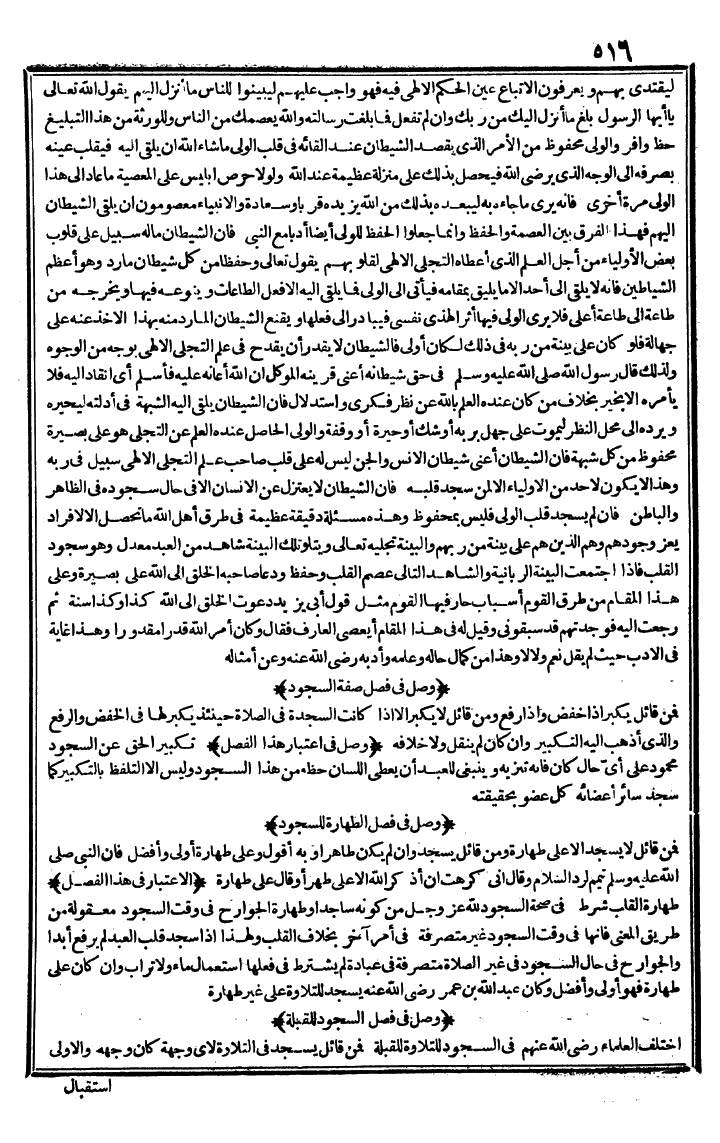 ٥١٦
ليقتدى بهم ويعرفون الاتباع عين الحكم الالهى فيه فهو واجب عليهم ليبينوا للناس ما أنزل اليهم يقول الله تعالى
يا أيها الرسول بلغ ما أنزل اليك من ربك وان لم تفعل فما بلغت رسالته والله يعصمك من الناس وللورثة من هذا التبليغ
حظ وافر والولى محفوظ من الأمر الذى يقصد الشيطان عند القائه فى قلب الولى ما شاء الله ان يلقى اليه فيقلب عينه
بصرفه الى الوجه الذى يرضى الله فيحصل بذلك على منزلة عظيمة عند الله ولولا حرص ابليس على المعصية ما عاد الى هذا
الولى مرة أخرى فانه يرى ما جاءه به ليبعده بذلك من الله يزيده قربا وسعادة والانبياء معصومون ان يلقى الشيطان
اليهم فهذا الفرق بين العصمة والحفظ وانما جعلوا الحفظ للولى أيضا أدبا مع النبى فان الشيطان ماله سبيل على قلوب
بعض الأولياء من أجل العلم الذى أعطاه التجلى الالهى لقلوبهم يقول تعالى وحفظا من كل شيطان مارد وهو أعظم
الشياطين فانه لا يلقى الى أحد الا ما يليق بمقامه فيأتى الى الولى فما يلقى اليه الا فعل الطاعات وينوعه فيها ويخرجه من
طاعة الى طاعة أعلى فلا يرى الولى فيها أثر الهوى نفسى فيبادر الى فعلها ويقنع الشيطان المارد منه بهذا الاخذ عنه على
جهالة فلو كان على بينة من ربه فى ذلك لكان أولى فالشيطان لا يقدر أن يقدح فى علم التجلى الالهى بوجه من الوجوه
ولذلك قال رسول الله صلى الله عليه وسلم فى حق شيطانه أعنى قرينه الموكل ان الله أعانه عليه فأسلم أى انقاد اليه فلا
يأمره الا بخير بخلاف من كان عنده العلم بالله عن نظر فكرى واستدلال فان الشيطان يلقى اليه الشبهة فى أدلته ليحيره
ويرده الى محل النظر ليموت على جهل بربه أو شك أو حيرة أو وقفة والولى الحاصل عنده العلم عن التجلى هو على بصيرة
محفوظ من كل شبهة فان الشيطان أعنى شيطان الانس والجن ليس له على قلب صاحب علم التجلى الالهى سبيل فى ربه
وهذا لا يكون لاحد من الاولياء الا لمن سجد قلبه فان الشيطان لا يعتزل عن الانسان الا فى حال سجوده فى الظاهر
والباطن فان لم يسجد قلب الولى فليس بمحفوظ وهذه مسئلة دقيقة عظيمة فى طرق أهل الله ما تحصل الا لافراد
يعز وجودهم وهم الذين هم على بينة من ربهم والبينة تجليه تعالى ويتلو تلك البينة شاهد من العبد معدل وهو سجود
القلب فاذا اجتمعت البينة الربانية والشاهد التالى عصم القلب وحفظ ودعا صاحبه الخلق الى الله على بصيرة وعلى
هذا المقام من طرق القوم أسباب حار فيها القوم مثل قول أبى يزيد دعوت الخلق الى الله كذا وكذا سنة ثم
رجعت اليه فوجدتهم قد سبقونى وقيل له فى هذا المقام أيعصى العارف فقال وكان أمر الله قدرا مقدورا وهذا غاية
فى الادب حيث لم يقل نعم ولا لا وهذا من كمال حاله وعلمه وأدبه رضى الله عنه وعن أمثاله
﴿وصل فى فصل صفة السجود﴾
فمن قائل يكبر اذا خفض واذا رفع ومن قائل لا يكبر الا اذا كانت السجدة فى الصلاة حينئذ يكبر لها فى الخفض والرفع
والذى أذهب اليه التكبير وان كان لم ينقل ولا خلافه ﴿وصل فى اعتبار هذا الفصل﴾ تكبير الحق عن السجود
محمود على أىّ حال كان فانه تنزيه وينبغى للعبد أن يعطى اللسان حظه من هذا السجود وليس الا التلفظ بالتكبير كما
سجد سائر أعضائه كل عضو بحقيقته
﴿وصل فى فصل الطهارة للسجود﴾
فمن قائل لا يسجد الا على طهارة ومن قائل يسجد وان لم يكن طاهرا وبه أقول وعلى طهارة أولى وأفضل فان النبى صلى
الله عليه وسلم تيمم لرد السلام وقال انى كرهت ان أذكر الله الا على طهر أو قال على طهارة ﴿الاعتبار فى هذا الفصل﴾
طهارة القلب شرط فى صحة السجود لله عز وجل من كونه ساجدا وطهارة الجوارح فى وقت السجود معقولة من
طريق المعنى فانها فى وقت السجود غير متصرفة فى أمر آخر بخلاف القلب ولهذا اذا سجد قلب العبد لم يرفع أبدا
والجوارح فى حال السجود فى غير الصلاة متصرفة فى عبادة لم يشترط فى فعلها استعمال ماء ولا تراب وان كان على
طهارة فهو أولى وأفضل وكان عبد الله بن عمر رضى الله عنه يسجد للتلاوة على غير طهارة
﴿وصل فى فصل السجود للقبلة﴾
اختلف العلماء رضى الله عنهم فى السجود للتلاوة للقبلة فمن قائل يسجد فى التلاوة لاى وجهة كان وجهه والاولى
استقبال